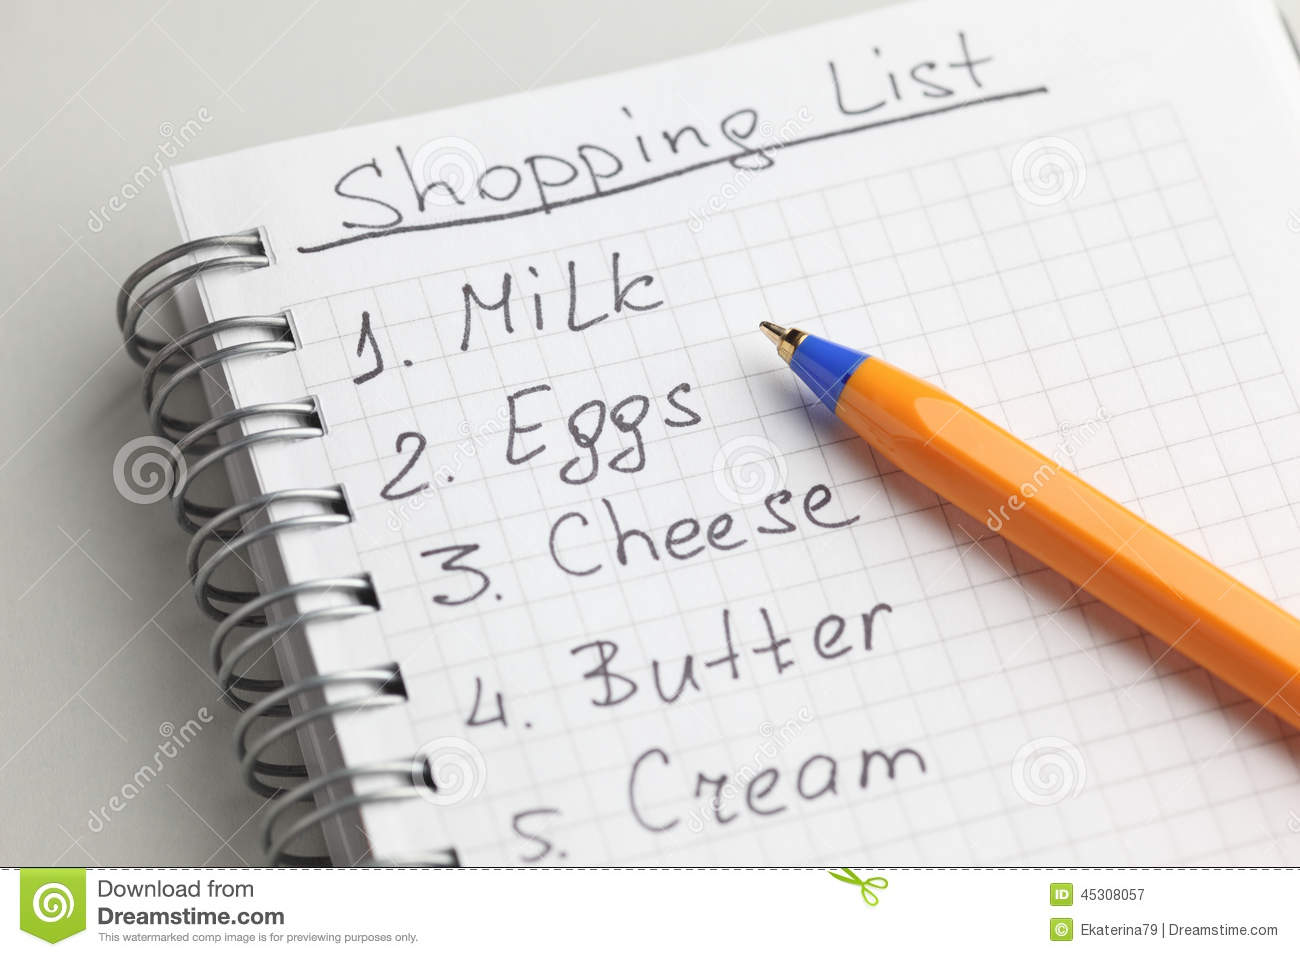 Shopping List
1. Milk
2. Eggs
3. Cheese
4. Butter
5. Cream
dreamstime
Download from
Dreamstime.com
This watermarked comp image is for previewing purposes only.
ID 45308057
© Ekaterina79 | Dreamstime.com